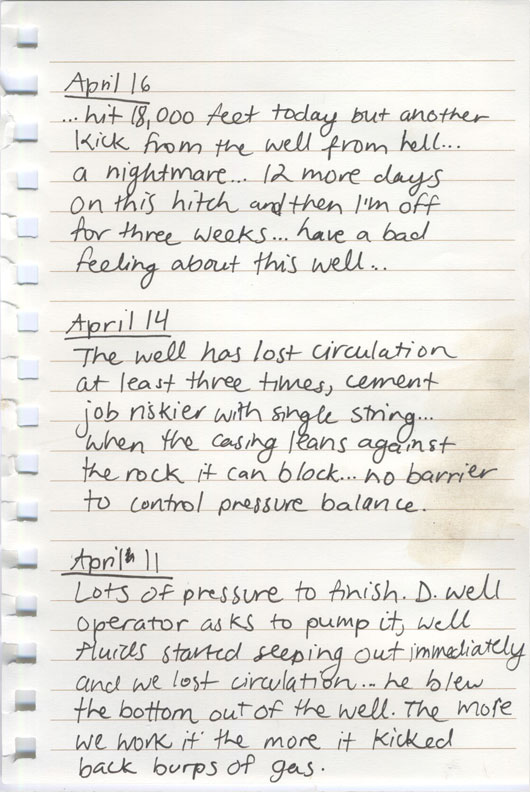 April 16
...hit 18,000 feet today but another
kick from the well from hell...
a nightmare... 12 more days
on this hitch and then I'm off
for three weeks... have a bad
feeling about this well...
April 14
The well has lost circulation
at least three times, cement
job riskier with single string...
when the casing leans against
the rock it can block... no barrier
to control pressure balance.
April 11
Lots of pressure to finish. D. well
operator asks to pump it, well
fluids started seeping out immediately
and we lost circulation... he blew
the bottom out of the well. The more
we work it the more it kicked
back burps of gas.